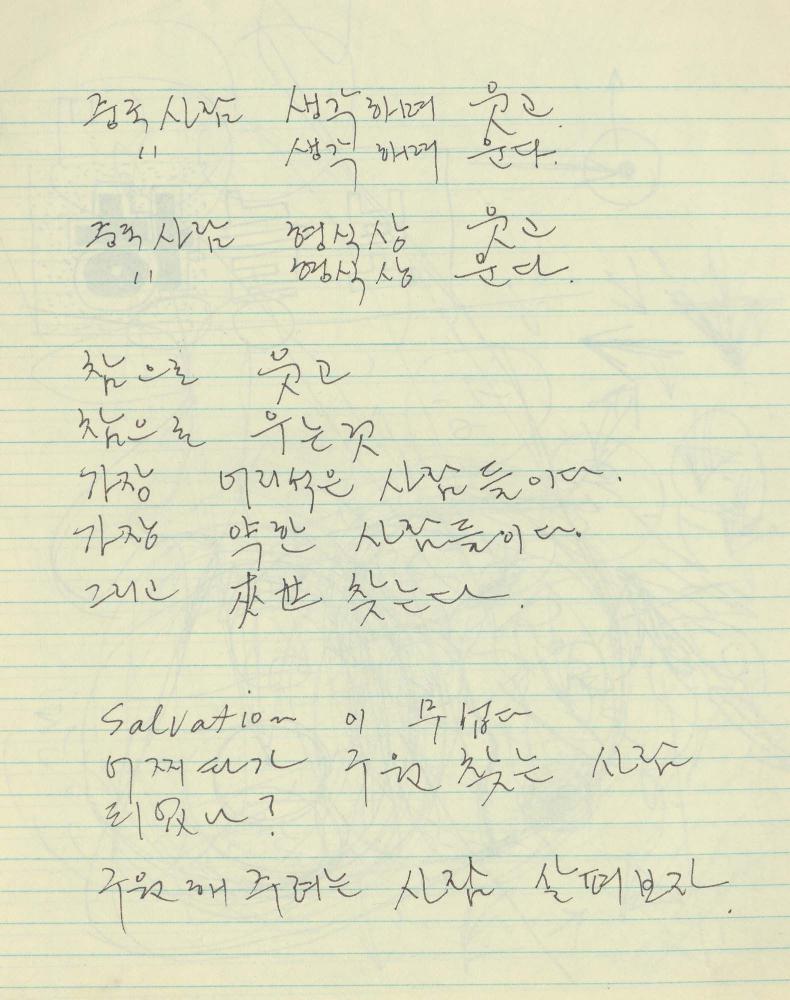 중국 사람 생각하며 웃고
" 생각하며 운다.
중국 사람 형식상 웃고
" 형식상 운다.
참으로 웃고
참으로 우는것
가장 어리석은 사람들이다.
가장 약한 사람들이다.
그리고 來世 찾는다.
Salvation 이 무섭다
어쩌다가 구원 찾는 사람
되었나?
구원해 주려는 사람 살펴보자.